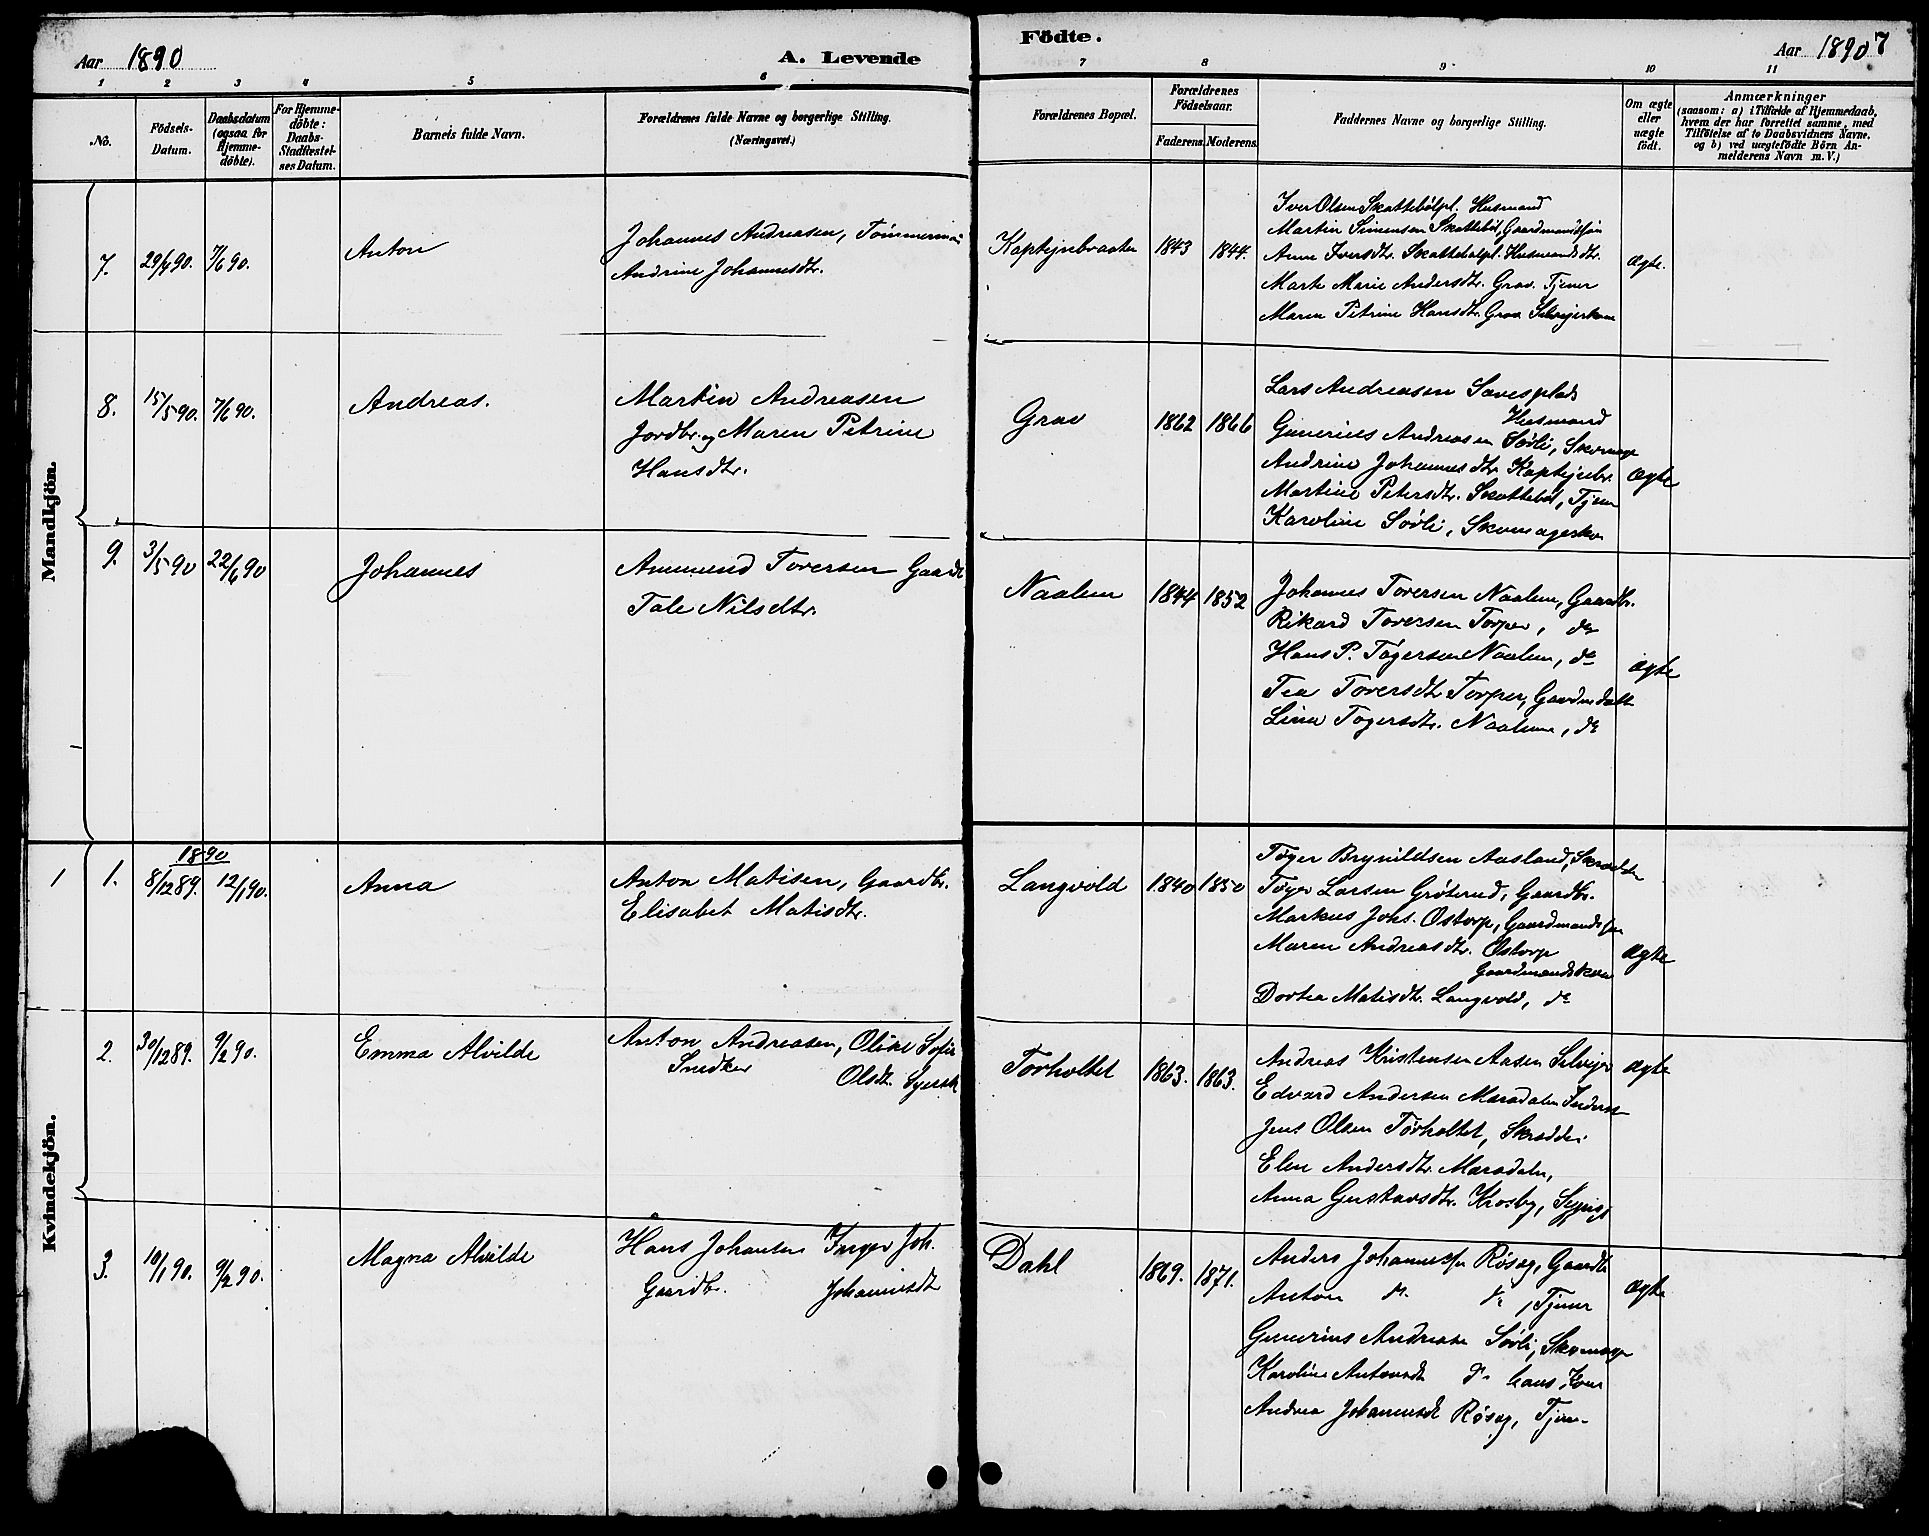 Aar 1890
A. Levende
Födte.
Aar 1890
7
1 2 3 4 5 6 7 8 9 10 11
No.
Födsels-
Datum.
Daabsdatum
(ogsaa for
Hjemme-
döbte).
For Hjemme-
döbte:
Daabs-
Stadfæstel-
ses Datum.
Barnets fulde Navn.
Forældrenes fulde Navne og borgerlige Stilling.
(Næringsvei.)
Forældrenes Bopæl.
Forældrenes
Födselsaar.
Faderens. Moderens.
Faddernes Navne og borgerlige Stilling.
Om ægte
eller
uægte
födt.
Anmærkninger
(saasom: a) i Tilfælde af Hjemmedaab,
hvem der har forrettet samme, med
Tilföielse af to Daabsvidners Navne,
og b) ved uægtefödte Börn An-
melderens Navn m. V.)
Mandkjön.
7. 7/6 90. Anton
Johannes Andreasen, Tømmerman
Andrine Johannesdtr.
Kaptejnbraaten 1843 1844.
Iver Olsen Skattebølpl. Husmand
Martin Simensen Skattebøl, Gaardmandssøn
Anne Iversdtr. Skattebølpl. Husmandsdtr.
Marte Marie Andersdtr. Grav. Tjener
Maren Petrine Hansdtr. Grav
ægte.
8. 15/5 90. 7/6 90. Andreas.
Martin Andreasen
Jordbr. og Maren Petrine
Hansdtr.
Grav 1862 1866
Lars Andreasen
Husmand
Gunerius Andreasen Sørli, Skomager
Andrine Johannesdtr. Kaptejnbr.
Martine Petersdtr. Skattebøl, Tjener
Karoline Sørli, Skomagerkon
ægte
9. 3/5 90 22/6 90 Johannes
Ammund Toversen Gaardb
Tale Nilsdtr.
Naalem 1844 1852
Johannes Toversen Naalem, Gaardbr.
Rikard Toversen Torper, do
Hans P. Tøgersen Naalem, do
Tea Toversdtr. Torper, Gaardmdatt
Lina Tøgersdtr. Naalem, do
ægte
Kvindekjön.
1890
1 1. 8/12 89. 12/1 90. Anna
Anton Matisen, Gaardbr.
Elisabet Matisdtr.
Langvold 1840 1850
Tøger Brynildsen Aasland,
Tøger Larsen Grøterud, Gaardbr.
Markus Johs. Ostorp, Gaardmandssøn
Maren Andreasdtr. Ostorp
Gaardmandskone
Dortea Matisdtr. Langvold, do
ægte
2. 30/12 89. 9/2 90. Emma Alvilde
Anton Andreasen, Oline Sofie
Snedker Olsdtr.
Torholtet 1863. 1863.
Andreas Kristensen Aasen Selvejer
Edvard Andersen
Jens Olsen Torholtet, Skrædder
Elen Andersdtr.
Anna Gustavsdtr. Krosby,
ægte
3. 10/1 90. 9/2 90. Magna Alvilde
Hans Johansen Inger Joh.
Gaardbr. Johannesdtr
Dahl 1869. 1871.
Anders Johannessen Røsæg, Gaardbr
Anton do. do, Tjener
Gunerius Andreasen Sørli, Skomager
Karoline Antonsdtr do hans Kone
Andrea Johannesdtr Røsæg, Tjene-
ægte